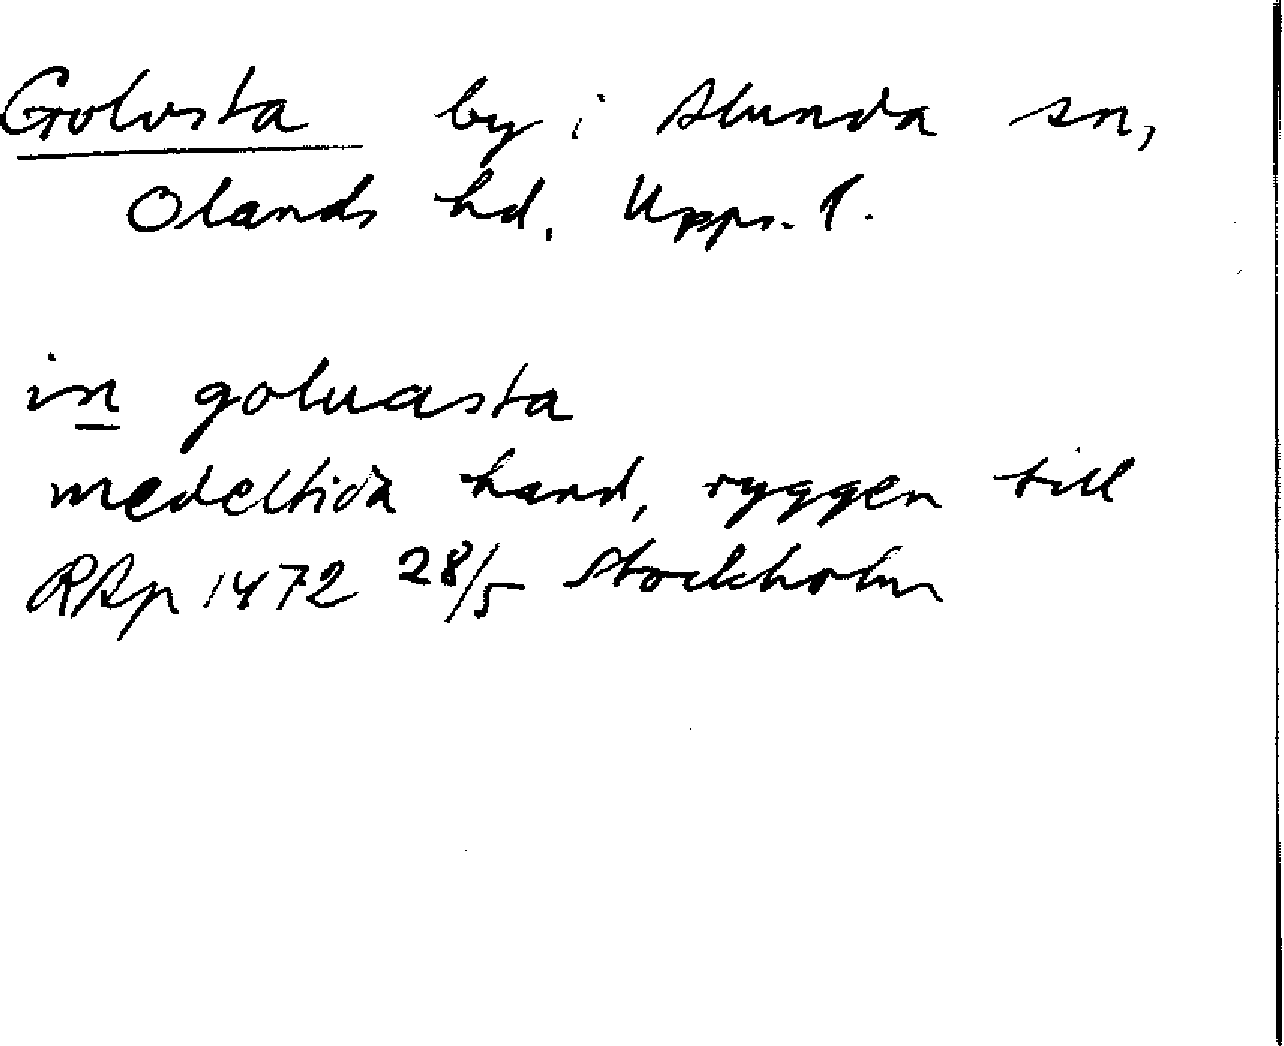 Golvsta by i Alunda sn,
Olands hd. Upps. l.
in goluasta
medeltida hand, ryggen till
RAp 1472 28/5 Stockholm